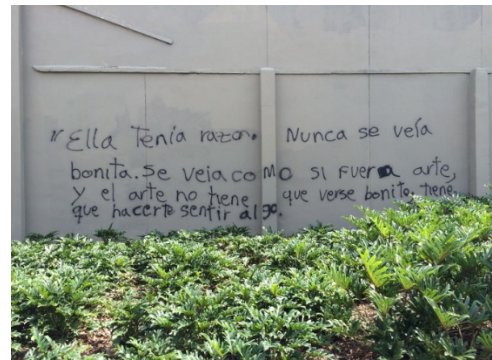 "Ella Tenía razon. Nunca se veía
bonita. Se veia como si fuera arte,
y el arte no tiene que verse bonito, tiene
que hacerte sentir algo.